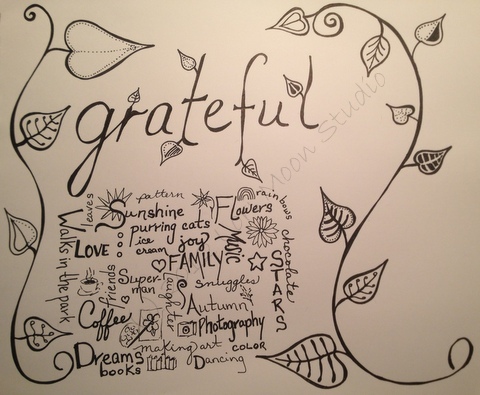 grateful
Moon Studio
leaves
pattern
rainbows
Sunshine
Flowers
purring cats
Walks in the park
LOVE
ice cream
joy
Magic
FAMILY
chocolate
friends
Super-man
laughter
snuggles
STARS
Autumn
Coffee
Photography
making art
COLOR
Dreams
books
Dancing